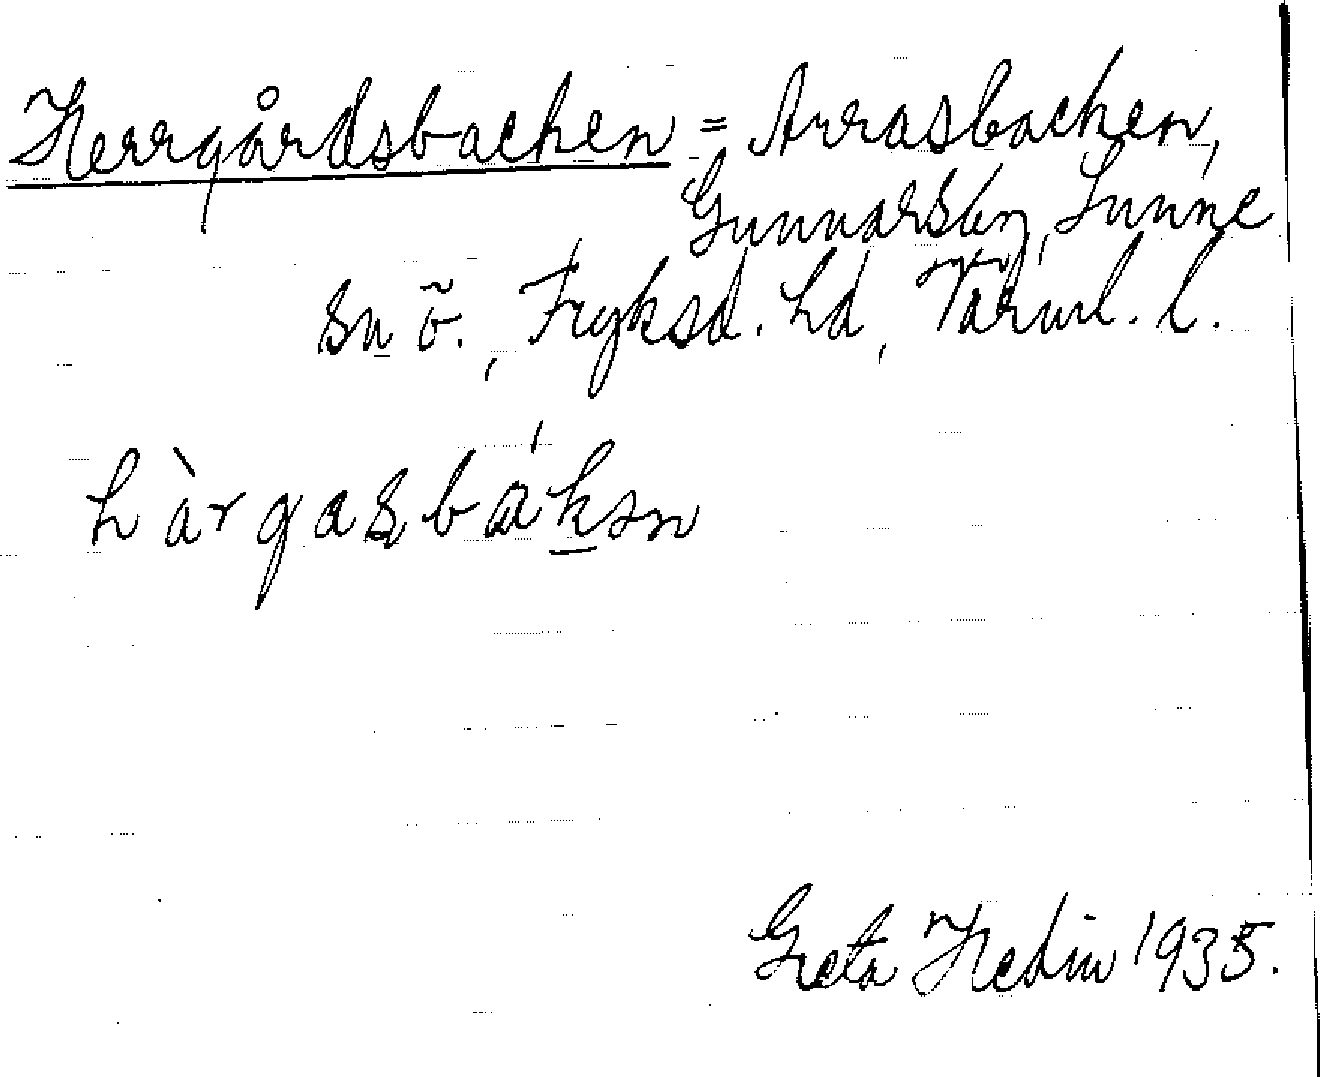 Herrgårdsbacken = Arrasbacken,
Gunnarsby, Sunne
sn ö., Fryksd. hd, Värml. l.
hàrgasbákən
Greta Hedin 1935.